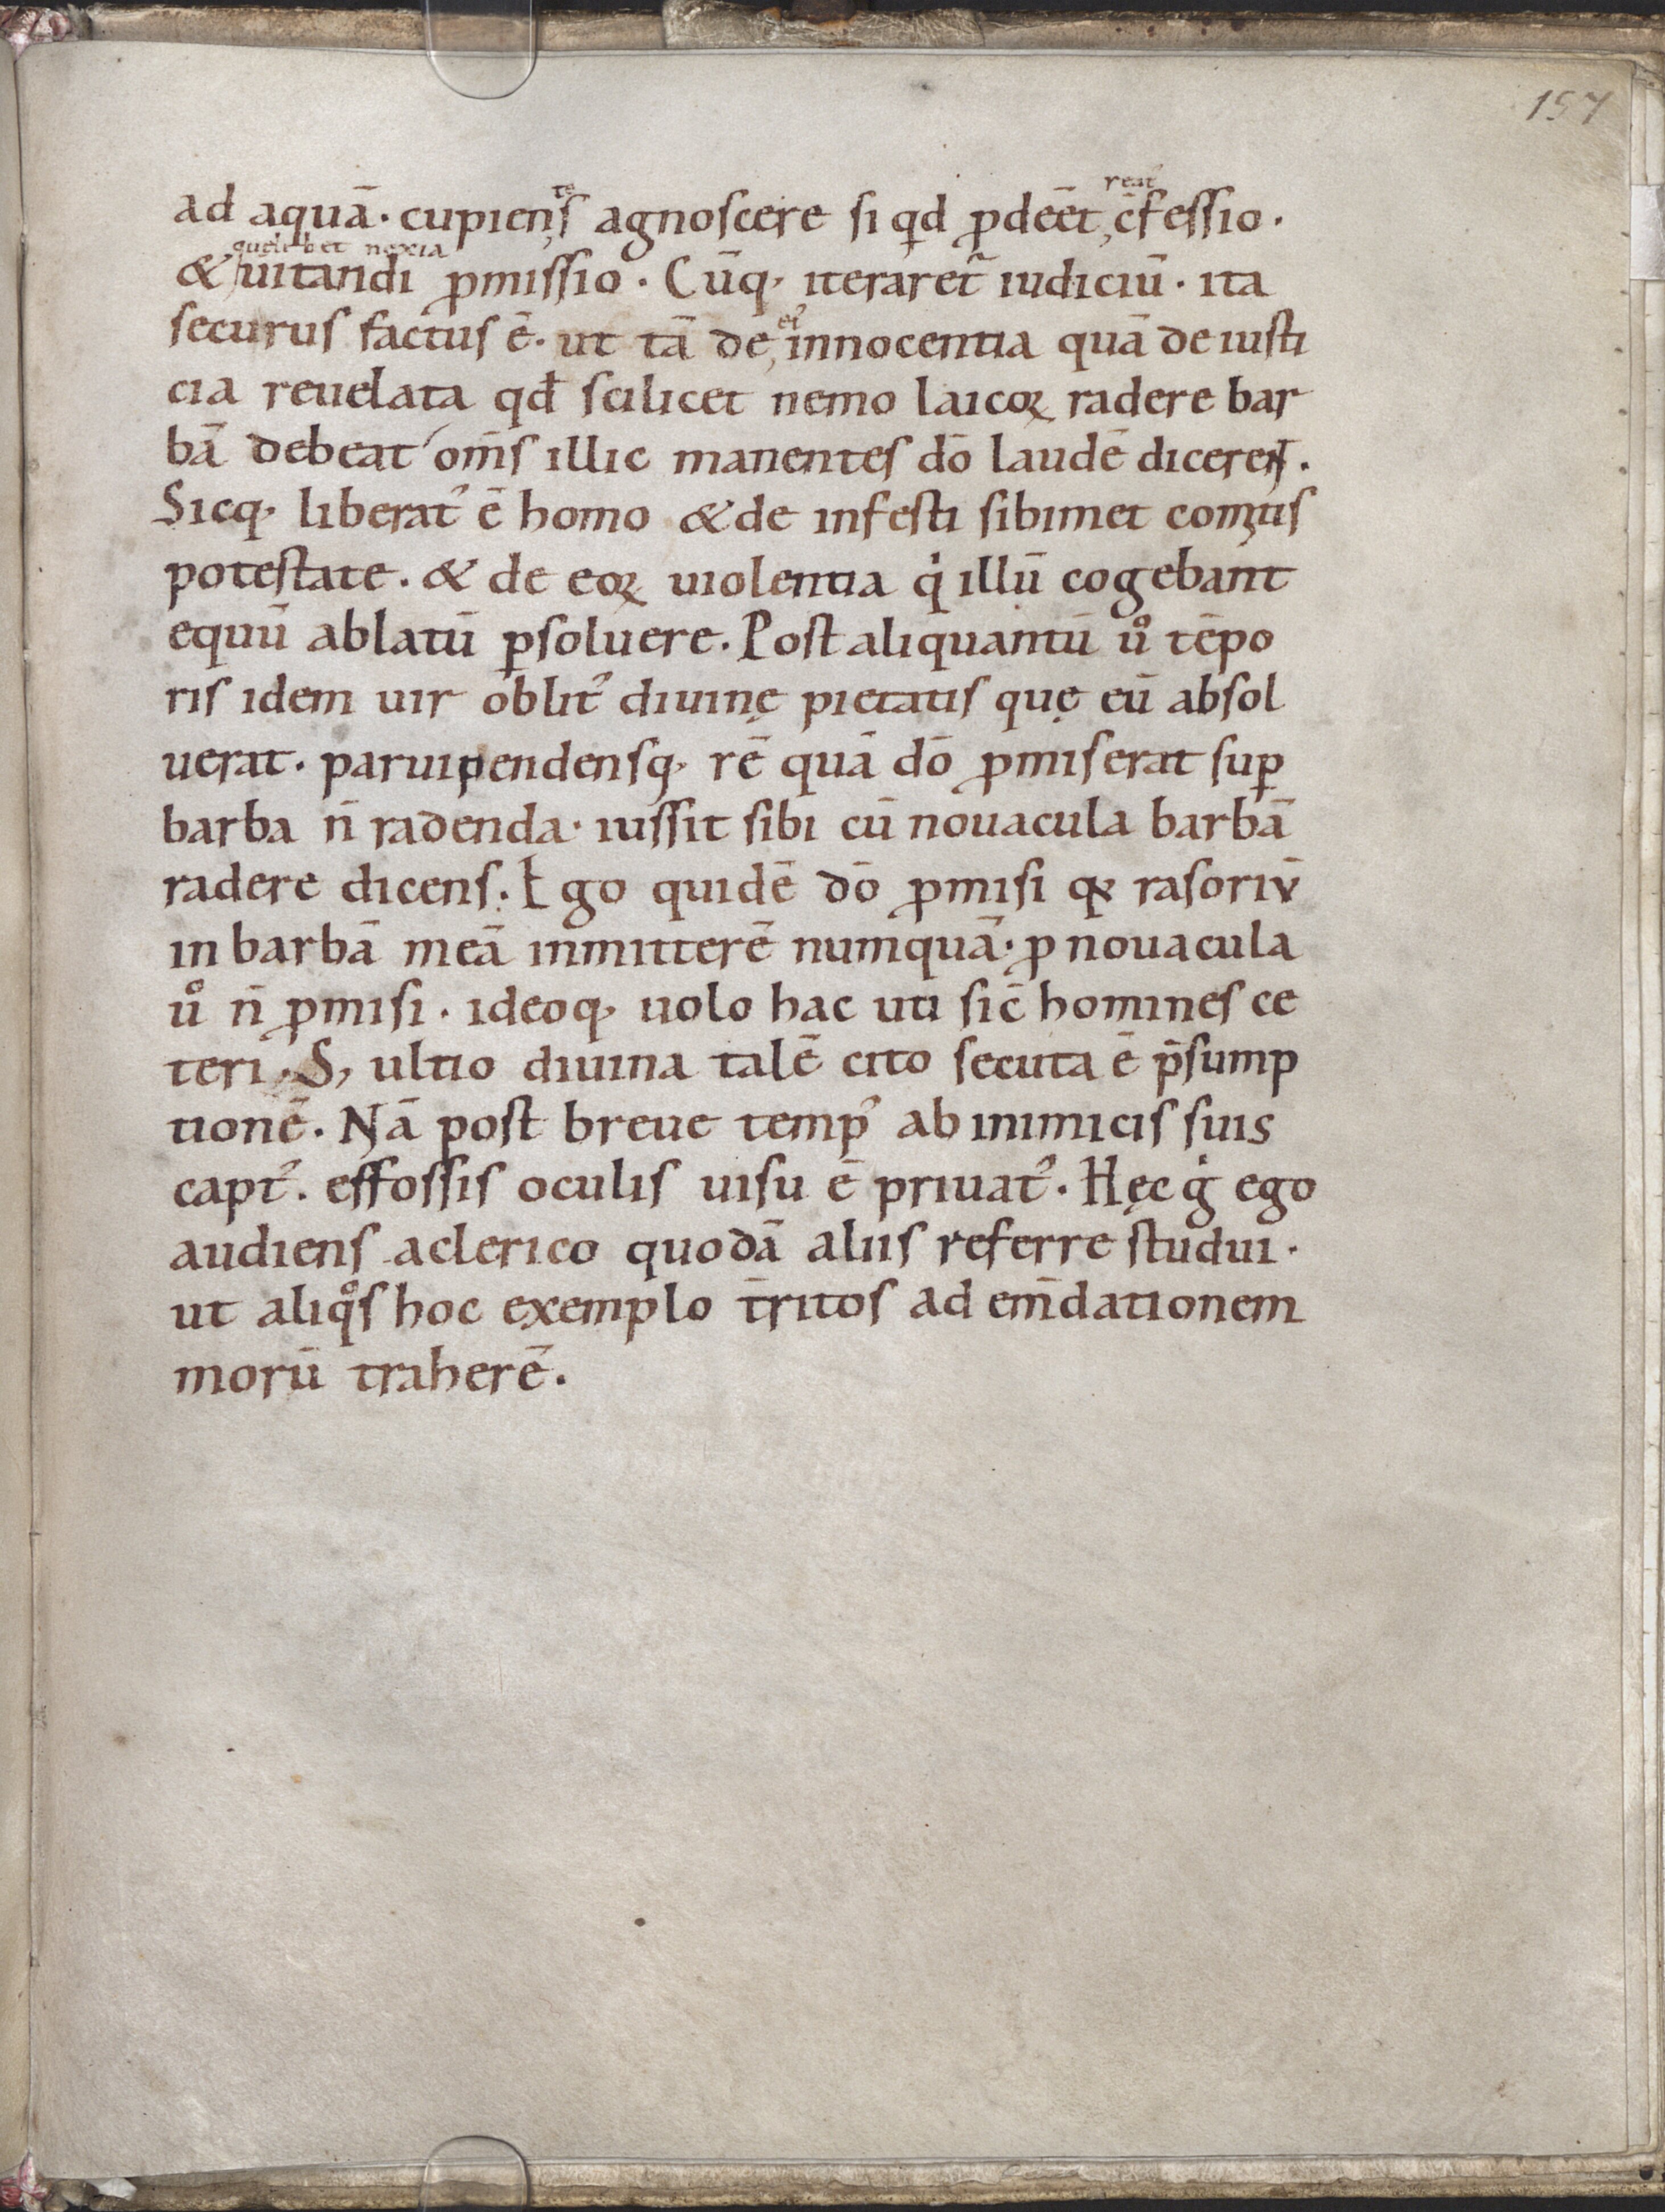 157
te reat᷒
ad aquā· cupienſ agnoſcere ſi qd ꝓdeēt c̄feſſio·
quelibet noxia
& uitandi ꝓmiſſio· Cūq; iteraret᷑ iudiciū· ita
ei᷒
ſecuruſ factuſ ē· ut tā de innocentia quā de iuſti
cia reuelata qđ ſcilicet nemo laicoꝝ radere bar
bā debeat om̄ſ illic manenteſ dō laudē dicerent.
Sicq; liberat᷒ ē homo & de infeſti ſibimet comitiſ
poteſtate. & de eoꝝ uiolentia qͥ illū cogebant
equū ablatū ꝑſoluere. Poſt aliquantū uͦ tēpo
riſ idem uir oblit᷒ diuinę pietatiſ quę eū abſol
uerat. paruipendenſq; rē quā dō ꝓmiſerat ſuꝑ
barba n̄ radenda· iuſſit ſibi cū nouacula barbā
radere dicenſ. Ego quidē dō ꝓmiſi qꝫ raſoriū
in barbā meā inmitterē numquā· ꝓ nouacula
uͦ n̄ ꝓmiſi. ideoq; uolo hac uti ſic̄ homineſ ce
teri. S; ultio diuina talē cito ſecuta ē p̄ſump
tionē. Nā poſt breue temp᷒ ab inimiciſ ſuis
capt᷒. effoſſiſ oculiſ uiſu ē priuat᷒. Hęc gͥ ego
audienſ a clerico quodā aliiſ referre ſtudui·
ut aliqͦſ hoc exemplo t̄ritoſ ad em̄dationem
morū traherē.